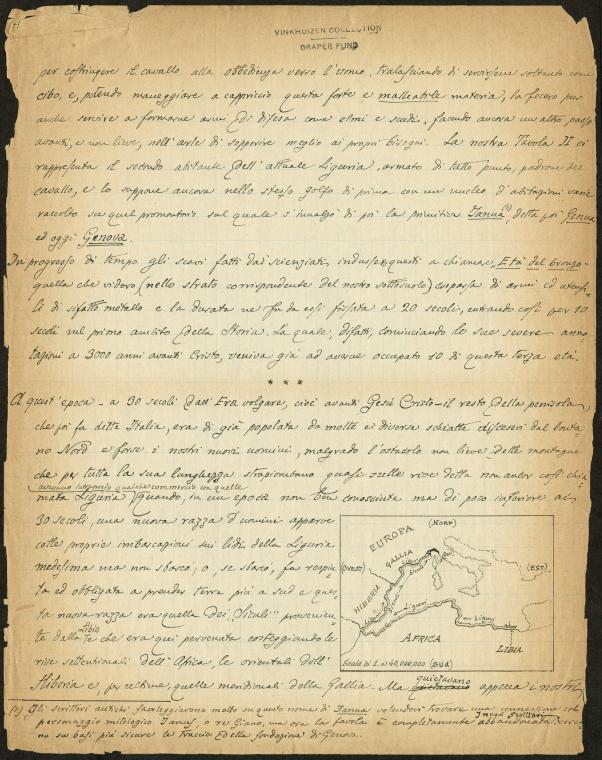 VINKHUIZEN COLLECTION
DRAPER FUND
per costringere il cavallo alla obbedienza verso l'uomo, tralasciando di servirsene soltanto come
cibo, e, potendo maneggiare a capriccio questa forte e malleabile materia, la fecero pur
anche servire a formarne armi di difesa come elmi e scudi, facendo ancora un altro passo
avanti, e non lieve, nell'arte di sopperire meglio ai propri bisogni. La nostra Tavola II ci
rappresenta il secondo abitante dell'attuale Liguria, armato di tutto punto, padrone del
cavallo, e lo suppone ancora nello stesso golfo di prima con un nucleo d'abitazioni
raccolto su quel promontorio sul quale s'innalzò di poi la primitiva Janua(1), detta poi Genua
ed oggi Genova.
In progresso di tempo gli scavi fatti dai scienziati, indussero questi a chiamare, Età del bronzo
quella che videro (nello strato corrispondente del nostro sottosuolo) cosparsa di armi ed utensi-
li di siffatto metallo e la durata ne fu da essi fissata a 20 secoli, entrando così per 10
secoli nel primo ambito della Storia. La quale, difatti, cominciando le sue severe anno-
tazioni a 3000 anni avanti Cristo, veniva già ad averne occupato 10 di questa terza età.
* * *
A quest'epoca - a 30 secoli dall'Era volgare, cioè avanti Gesù Cristo - il resto della penisola,
che poi fu detta Italia, era di già popolata da molte e diverse schiatte discesevi dal lonta-
no Nord e forse i nostri nuovi uomini, malgrado l'ostacolo non lieve delle montagne
che per tutta la sua lunghezza strapiombano quasi sulle rive della non ancor così chia-
avevano intrapreso qualche commercio con quelle
mata Liguria) quando, in un'epoca non ben conosciuta ma di poco inferiore ai
30 secoli, una nuova razza d'uomini apparve
colle proprie imbarcazioni sui lidi della Liguria
medesima ma non sbarcò; o, se sbarcò, fu respin-
ta ed obbligata a prender terra più a sud e ques-
ta nuova razza era quella dei "Siculi" provenien-
te dalla Libia che era qui pervenuta costeggiando le
rive settentrionali dell'Africa, le orientali dell'
Hiberia e, per ultime, quelle meridionali della Gallia. Ma quietavano appena i nostri
EUROPA
(NORD)
GALLIA
(OVEST)
(EST)
HIBERIA
Siculi
Liguri
Liguri
AFRICA
LIBIA
Scala di 1 a 40,000,000
(SUD)
(1) Gli scrittori antichi favoleggiarono molto su questo nome di Janua volendovi trovare una connessione col
personaggio mitologico Janus, o re Giano, ma ora la favola è completamente abbandonata
no su basi più sicure le traccie della fondazione di Genova.